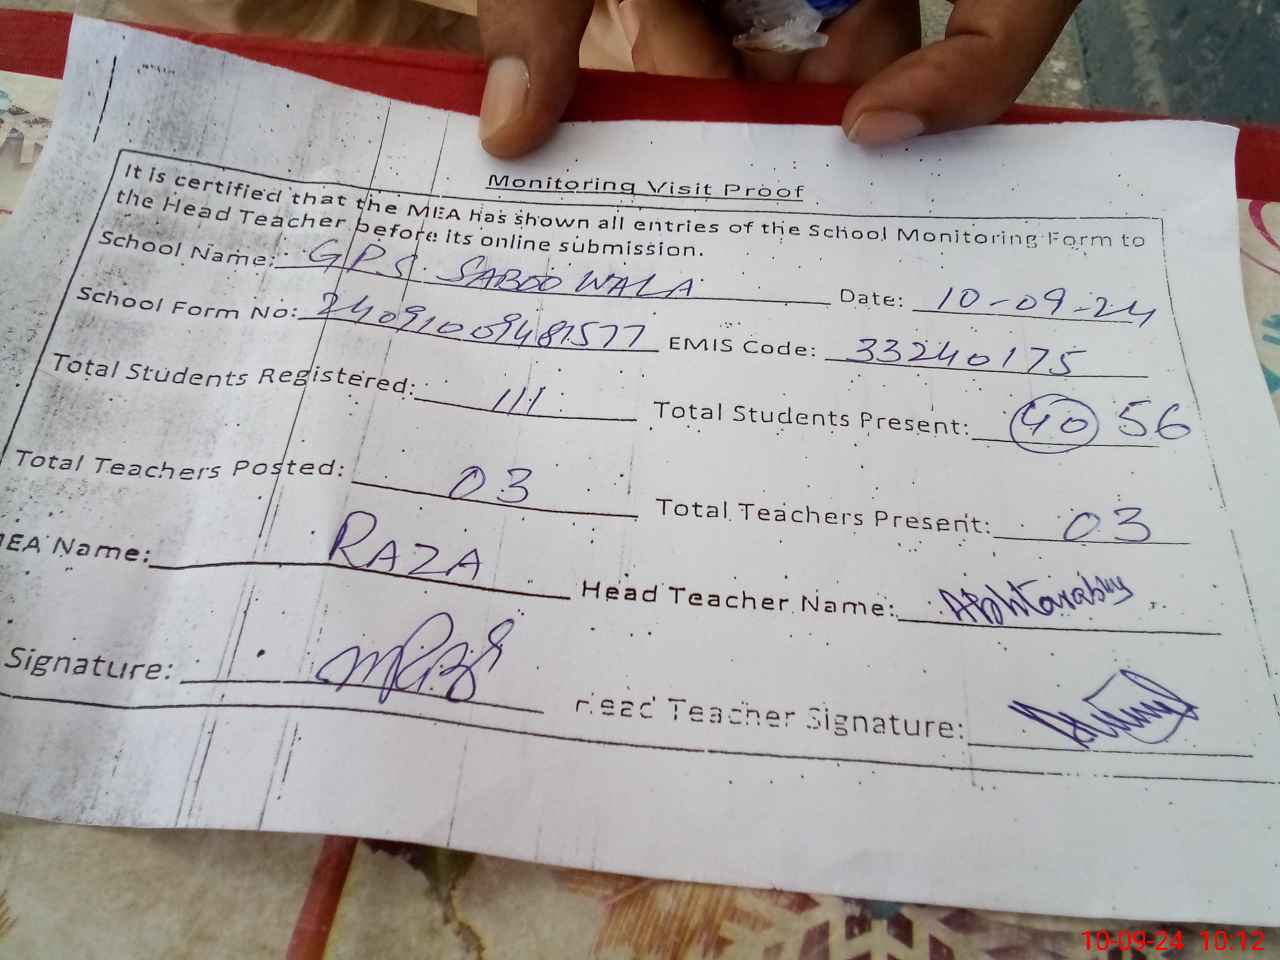 Monitoring Visit Proof
It is certified that the MEA has shown all entries of the School Monitoring Form to
the Head Teacher before its online submission.
School Name: G.P.S. SABOO WALA Date: 10-09-24
School Form No: 24091009481577 EMIS Code: 33240175
Total Students Registered: 111 Total Students Present: 40 56
Total Teachers Posted: 03 Total Teachers Present: 03
MEA Name: RAZA Head Teacher Name:
Signature: Head Teacher Signature:
10-09-24 10:12